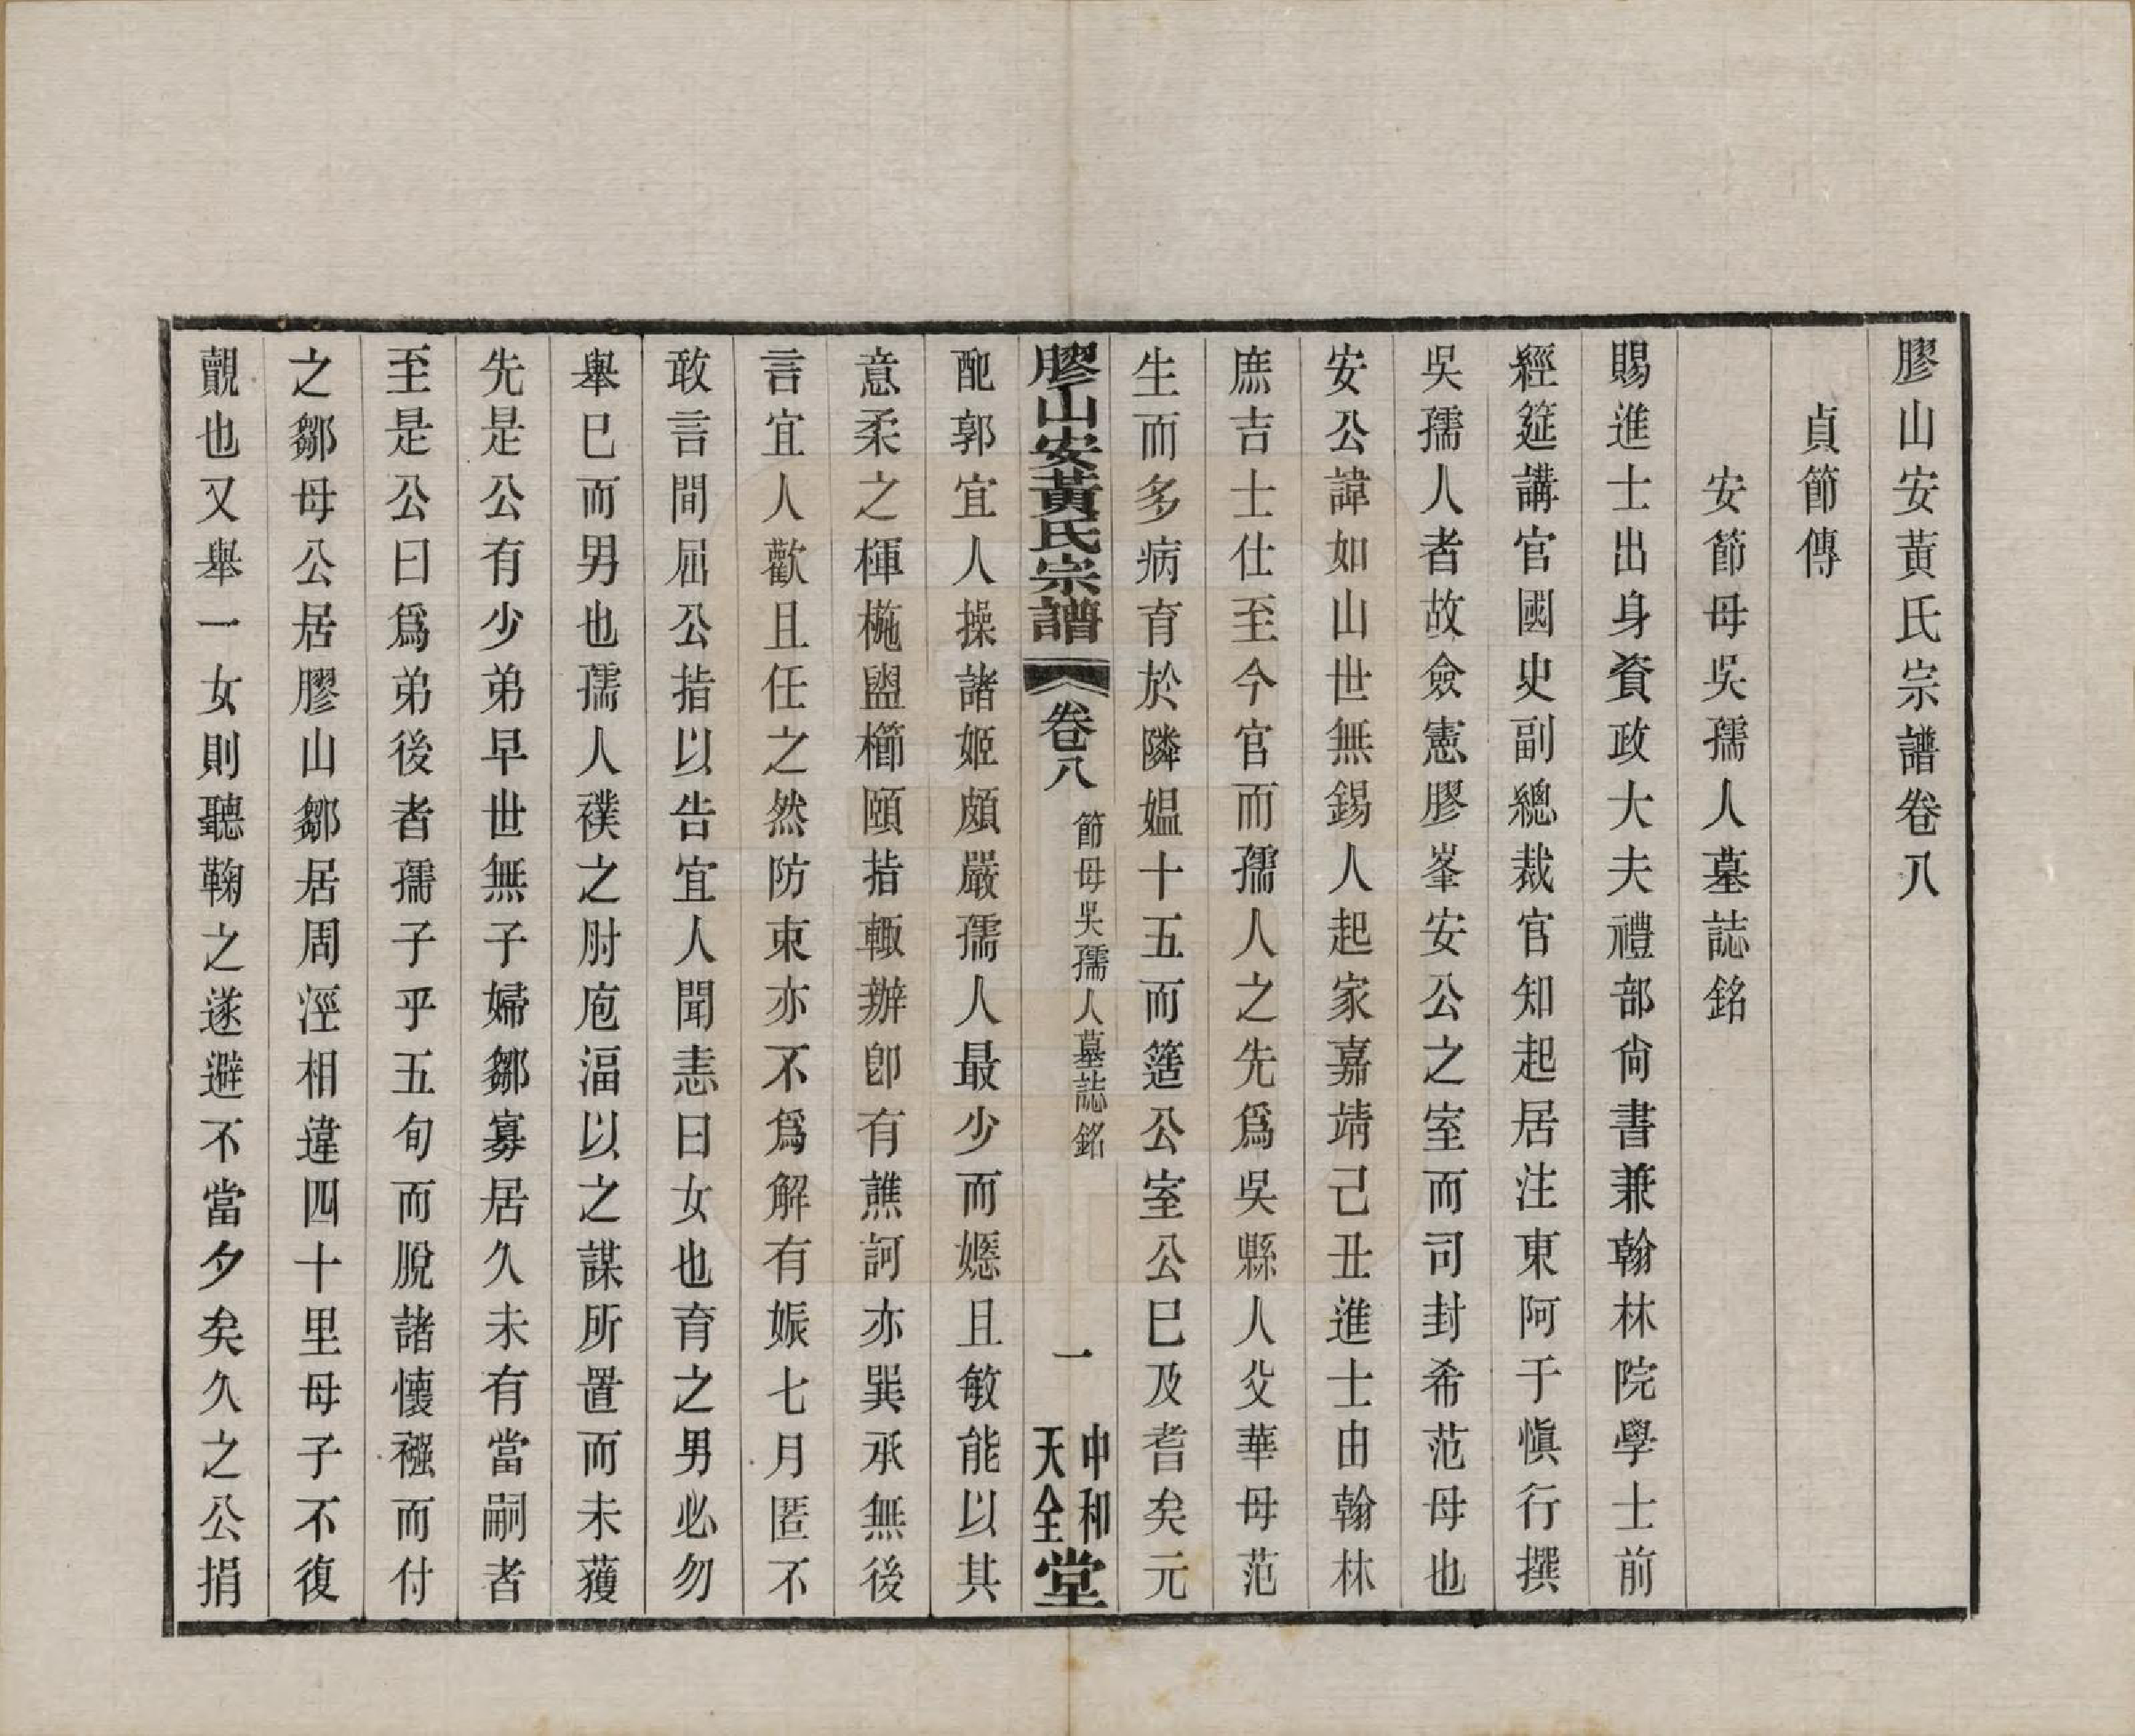 膠山安黃氏宗譜卷八
貞節傳
安節母吳孺人墓誌銘
賜進士出身資政大夫禮部尙書兼翰林院學士前
經筵講官國史副總裁官知起居注東阿于愼行撰
吳孺人者故僉憲膠峯安公之室而司封希范母也
安公諱如山世無錫人起家嘉靖己丑進士由翰林
庶吉士仕至今官而孺人之先爲吳縣人父華母范
生而多病育於隣媼十五而簉公室公巳及耆矣元
膠山安黃氏宗譜 卷八 節母吳孺人墓誌銘 一 中和天全堂
配郭宜人操諸姬頗嚴孺人最少而嬺且敏能以其
意柔之楎椸盥櫛頤指輒辦卽有譙訶亦巽承無後
言宜人歡且任之然防束亦不爲解有娠七月匿不
敢言間屆公指以告宜人聞恚曰女也育之男必勿
舉巳而男也孺人襆之肘庖湢以之謀所置而未獲
先是公有少弟早世無子婦鄒寡居久未有當嗣者
至是公曰爲弟後者孺子乎五旬而脫諸懷襁而付
之鄒母公居膠山鄒居周涇相違四十里母子不復
覿也又舉一女則聽鞠之遂避不當夕矣久之公捐